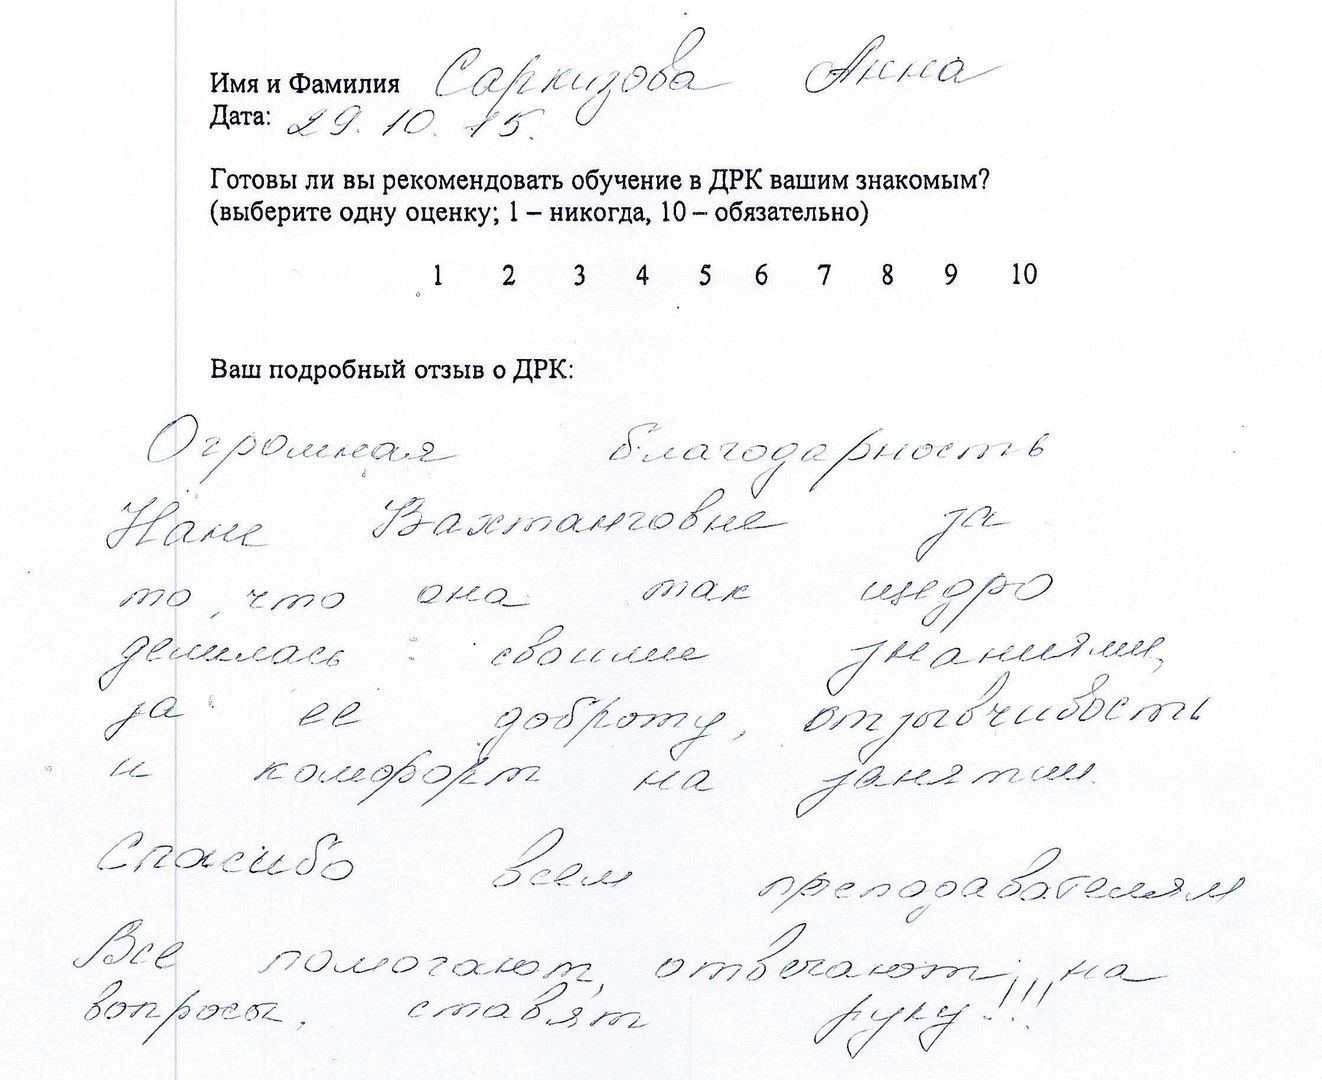 Имя и Фамилия Саркизова Анна
Дата: 29.10.15.
Готовы ли вы рекомендовать обучение в ДРК вашим знакомым?
(выберите одну оценку; 1 – никогда, 10 – обязательно)
1 2 3 4 5 6 7 8 9 10
Ваш подробный отзыв о ДРК:
Огромная благодарность
Нане Вахтанговне за
то, что она так щедро
делилась своими знаниями,
за ее доброту, отзывчивость
и комфорт на занятии.
Спасибо всем преподавателям
Все помогают, отвечают на
вопросы, ставят руку!!!